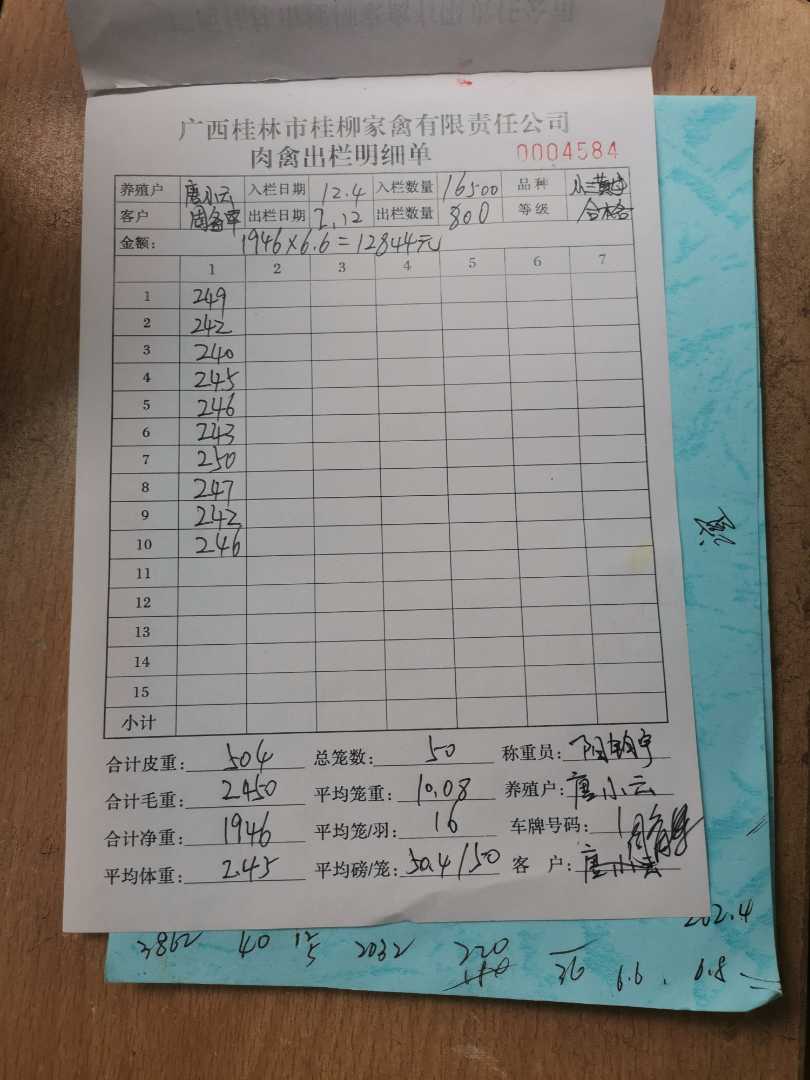 广西桂林市桂柳家禽有限责任公司
肉禽出栏明细单 0004584
养殖户 唐小云 入栏日期 12.4 入栏数量 16500 品种
客户 出栏日期 2.12 出栏数量 800 等级 合格
金额: 1946×6.6=12844元
1 2 3 4 5 6 7
1 249
2 242
3 240
4 245
5 246
6 243
7 250
8 247
9 242
10 246
11
12
13
14
15
小计
合计皮重: 504 总笼数: 50 称重员:
合计毛重: 2450 平均笼重: 10.08 养殖户: 唐小云
合计净重: 1946 平均笼/羽: 16 车牌号码:
平均体重: 2.45 平均磅/笼: 50.4/50 客户: 唐小云
202.4
3862 40 2032 220 36 6.6. 6.8